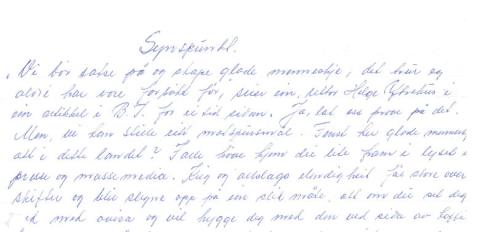 Synspunkt.
"Vi bør satse på og skape glade menneskje, det har eg
aldri har vore forsøkt før, seier ein, Helge i
ein artikkel i B.T. for ei tid sidan. Ja, lat oss prøve på det.
Men, eg kan stille eitt motspursmål. Finst her glade menneskj
att i dette landet? I alle høve kjem dei lite fram i lyset i
presse og massemedia. Krig og elendigheit får store over
skrifter og blir slegne opp på ein slik måte, att om du set deg
ned med avisa og vil hygge deg med den ved sida av kaffi